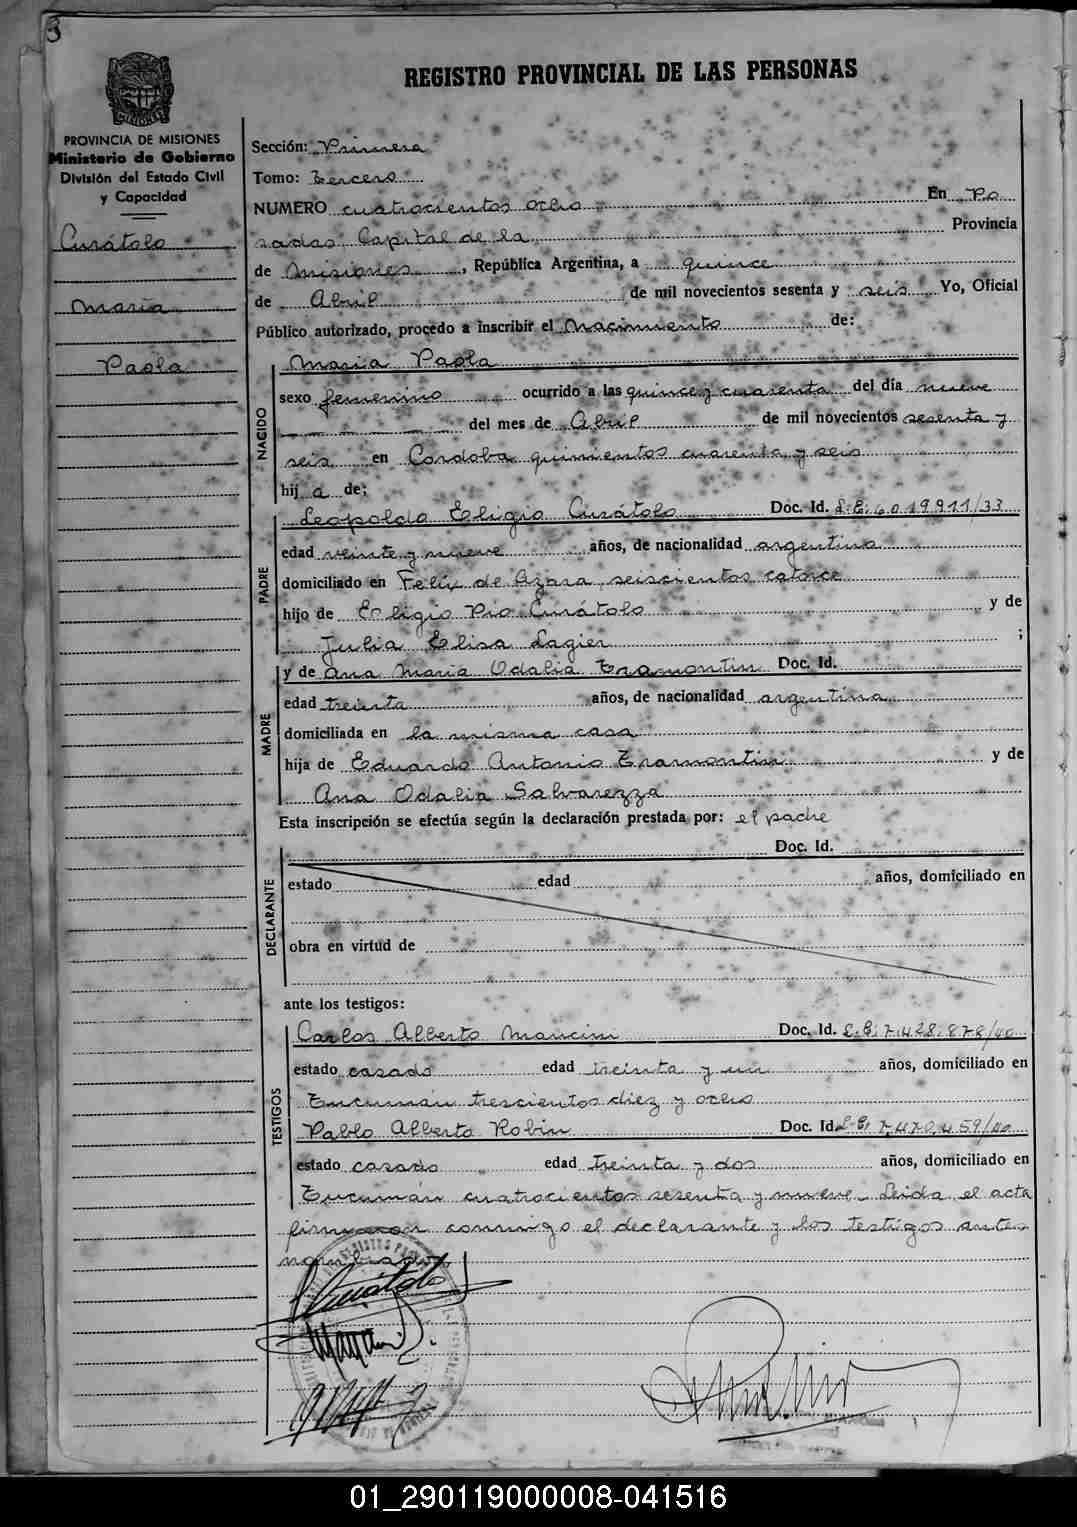 3
REGISTRO PROVINCIAL DE LAS PERSONAS
PROVINCIA DE MISIONES
Ministerio de Gobierno
División del Estado Civil
y Capacidad
Curátolo
María
Paola
Sección: Primera
Tomo: Tercero
NUMERO cuatrocientos ocho En Po
sadas Capital de la Provincia
de Misiones, República Argentina, a quince
de Abril de mil novecientos sesenta y seis Yo, Oficial
Público autorizado, procedo a inscribir el Nacimiento de:
NACIDO
María Paola
sexo femenino ocurrido a las quince y cuarenta del día nueve
del mes de Abril de mil novecientos sesenta y
seis en Córdoba quinientos cuarenta y seis
hij a de:
PADRE
Leopoldo Eligio Curátolo Doc. Id. L.E. 6.019911/33
edad veinte y nueve años, de nacionalidad argentina
domiciliado en Felix de Azara seiscientos catorce
hijo de Eligio Pio Curátolo y de
Julia Elisa Lagier ;
MADRE
y de Ana María Odalia Tramontin Doc. Id.
edad treinta años, de nacionalidad argentina
domiciliada en la misma casa
hija de Eduardo Antonio Tramontin y de
Ana Odalia Salvarezza
Esta inscripción se efectúa según la declaración prestada por: el padre
DECLARANTE
Doc. Id.
estado edad años, domiciliado en
obra en virtud de
ante los testigos:
TESTIGOS
Carlos Alberto Mancini Doc. Id. L.E. 7.428.878/40
estado casado edad treinta y un años, domiciliado en
Tucuman trescientos diez y ocho
Pablo Alberto Robin Doc. Id. L.E. 7.470.459/40
estado casado edad treinta y dos años, domiciliado en
Tucuman cuatrocientos sesenta y nueve Leida el acta
firmaron conmigo el declarante y los testigos antes
nombrados
Curátolo
01_290119000008-041516